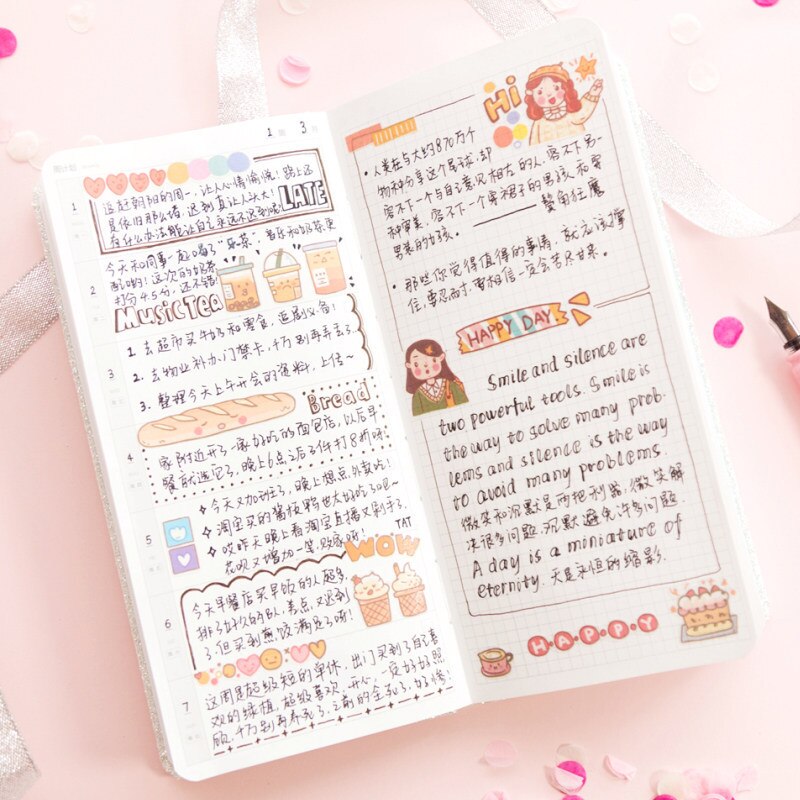 1 3
1
追赶朝阳的周一,让人心情愉悦!路上还
是依旧那么堵,迟到真让人头大!
有什么办法能让自己永远不迟到呢!
LATE
2
今天和同事一起喝了"乐茶",音乐和奶茶更
配哟!这次的奶茶
打分4.5分,还不错!
MUSIC Tea
3
1. 去超市买牛奶和零食,追剧必备!
2. 去物业补办门禁卡,千万别再弄丢了
3. 整理今天上午开会的资料,上传~
4
Bread
家附近开了一家好吃的面包店,以后早
餐就选它了,晚上6点之后3件打8折呀
5
今天又加班了,晚上想点外卖吃!
淘宝买的酱板鸭也太好吃了吧~
哎昨天晚上看淘宝直播又剁手了,
花呗又增加一笔,败家呀! TAT
WOW
6
今天早餐店买早饭的人超多,
排了好久的队,差点又迟到
了,但买到煎饺满足了呀!
7
这周是超级短的单休,出门买到了自己喜
欢的绿植,超级喜欢,开心,一定好好照
顾,千万别再养死了,之前的全死了,好惨!
Hi
人类在与大约870万个
物种分享这个属球,却
容不下一个与自己意见相左的人,容不下另一
种审美,容不下一个穿裙子的男孩和穿
男装的女孩。
那些你觉得值得的事,就应该撑
住,要忍耐,要相信一定会苦尽甘来。
HAPPY DAY
Smile and silence are
two powerful tools. Smile is
the way to solve many prob-
lems and silence is the way
to avoid many problems.
微笑和沉默是两把利器,微笑解
决很多问题,沉默避免许多问题
A day is a miniature of
eternity. 一天是永恒的缩影.
HAPPY